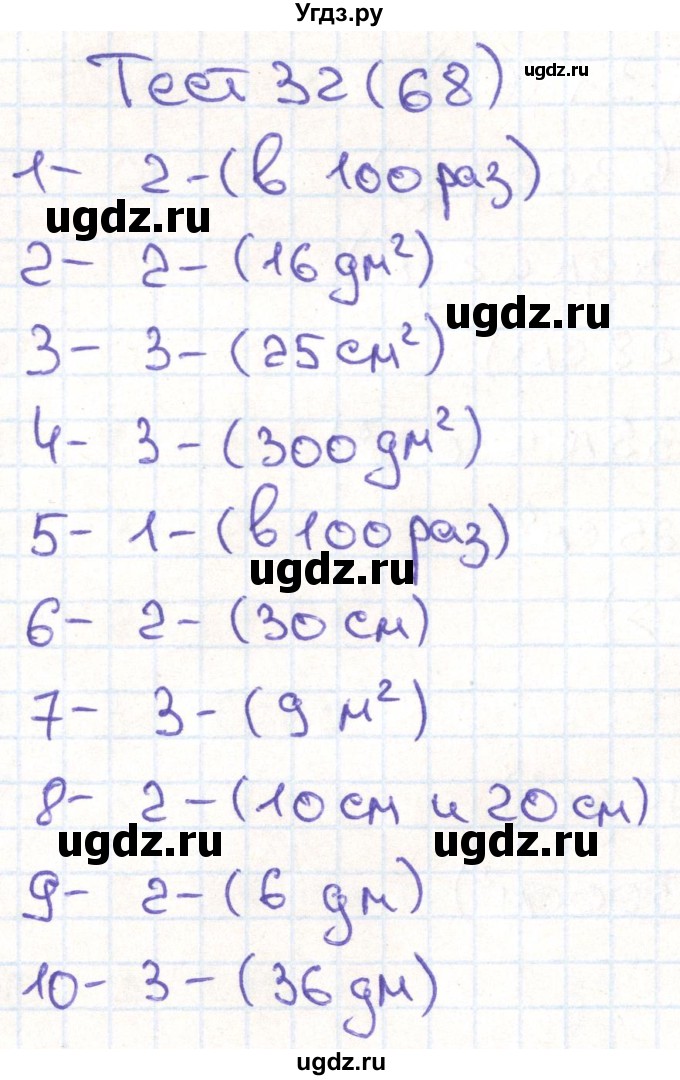 Угдз.ру
Тест 32 (68)
ugdz.ru
1- 2-(в 100 раз)
ugdz.ru
2- 2-(16 дм²)
ugdz.ru
3- 3-(25 см²)
4- 3-(300 дм²)
5- 1-(в 100 раз)
ugdz.ru
6- 2-(30 см)
7- 3-(9 м²)
8- 2-(10 см и 20 см)
ugdz.ru ugdz.ru
9- 2-(6 дм)
10- 3-(36 дм)
ugdz.ru